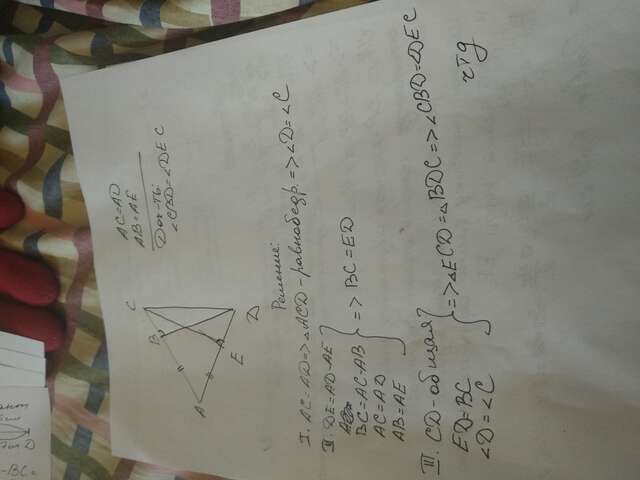 AC=AD
AB=AE
Док-ть:
∠CBD=∠DEC
C
B
A
E
D
Решение:
I. AC=AD=>△ACD-равнобедр.=>∠D=∠C
II. DE=AD-AE
BC=AC-AB
AC=AD
AB=AE
=> BC=ED
III. CD-общая
ED=BC
∠D=∠C
=>△ECD=△BDC=>∠CBD=∠DEC
чтд